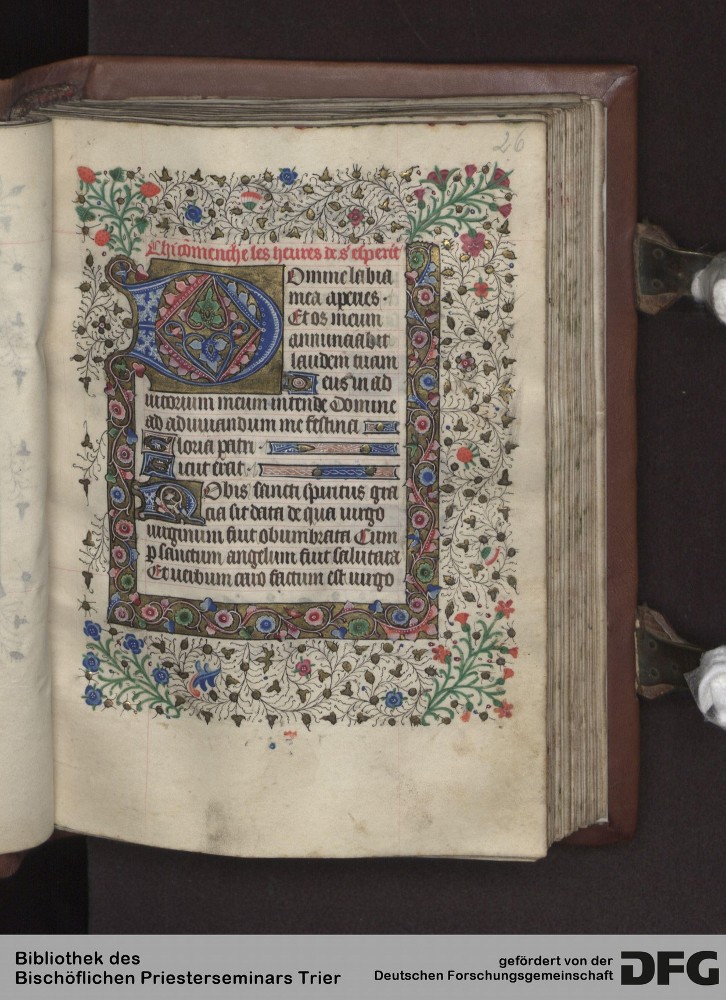 26
Chi cōmenche les heures de s' esperit
Domine labia
mea aperies .
Et os meum
annunciabit
laudem tuam
Deus in ad
iutorium meum intende Domine
ad adiuuandum me festina
Gloria patri .
Sicut erat .
Nobis sancti spiritus gra
cia sit data de qua uirgo
uirginum fuit obumbrata Cum
p sanctum angelum fuit salutata
Et uerbum caro factum est uirgo
Bibliothek des
Bischöflichen Priesterseminars Trier
gefördert von der
Deutschen Forschungsgemeinschaft
DFG